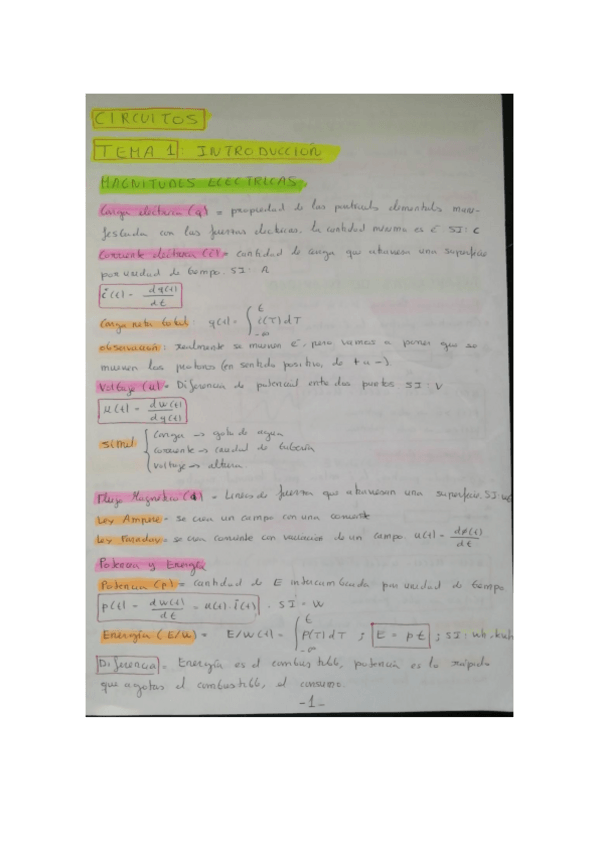 CIRCUITOS
TEMA 1: INTRODUCCIÓN
MAGNITUDES ELÉCTRICAS.
Carga eléctrica (q) = propiedad de las partículas elementales mani-
festada con las fuerzas eléctricas, la cantidad mínima es é SI: C
Corriente eléctrica (i) = cantidad de carga que atraviesa una superficie
por unidad de tiempo. SI: A
i(t) = dq(t)/dt
Carga neta total: q(t) = ∫_{-∞}^{t} i(T) dT
Observación: realmente se mueven é, pero vamos a poner que se
mueven los protones (en sentido positivo, de + a -)
Voltaje (u) = Diferencia de potencial entre dos puntos SI: V
u(t) = dw(t)/dq(t)
Símil { Carga → gota de agua
corriente → caudal de tubería
Voltaje → altura
Flujo Magnético (φ) = Líneas de fuerza que atraviesan una superficie. SI:
Ley Ampere = se crea un campo con una corriente
Ley Faraday = se crea corriente con variación de un campo. u(t) = dφ(t)/dt
Potencia y Energía
Potencia (p) = cantidad de E intercambiada por unidad de tiempo
p(t) = dw(t)/dt = u(t) · i(t) . SI = W
Energía (E/W) = E/w(t) = ∫_{-∞}^{t} p(T) dT ; E = p·t ; SI: wh, kwh
Diferencia = Energía es el combustible, potencia es lo rápido
que agotas el combustible, el consumo.
-1-